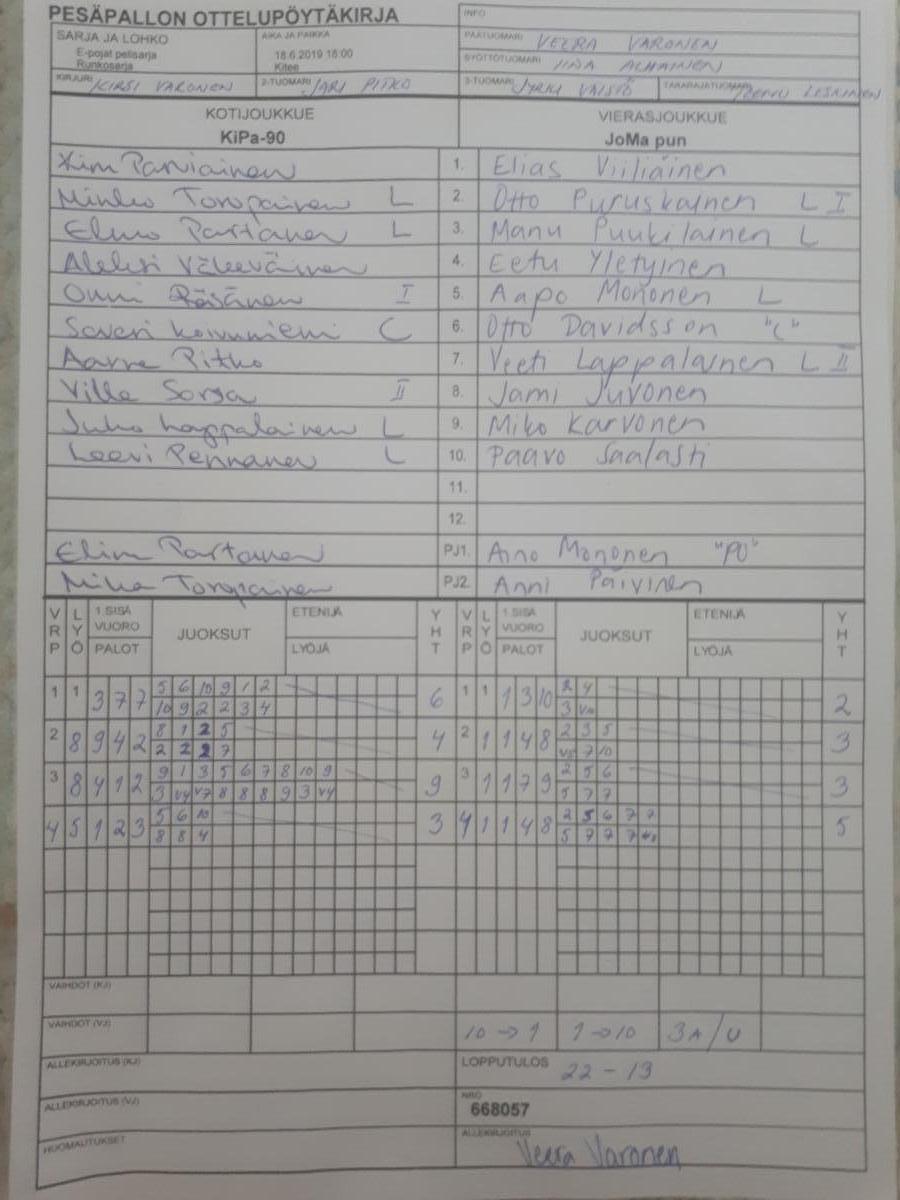 PESÄPALLON OTTELUPÖYTÄKIRJA
INFO
SARJA JA LOHKO
E-pojat pelisarja
Runkosarja
AIKA JA PAIKKA
18.6.2019 18:00
Kitee
PÄÄTUOMARI VEERA VARONEN
SYÖTTÖTUOMARI IINA
KIRJURI KIRSI VARONEN
2-TUOMARI JARI PITKO
3-TUOMARI JYRKI VÄISTÖ
TAKARAJATUOMARI LESKINEN
KOTIJOUKKUE
KiPa-90
VIERASJOUKKUE
JoMa pun
Kim Parviainen 1. Elias Viiliäinen
Minko Toropainen L 2. Otto Puruskainen L I
Elmo Partanen L 3. Manu Puukilainen L
Aleksi Väkeväinen 4. Eetu Yletyinen
Onni Räsänen I 5. Aapo Mononen L
Saveri Koivuniemi C 6. Otto Davidsson "C"
Aarne Pitko 7. Veeti Lappalainen L II
Ville Sorsa II 8. Jami Juvonen
Juho Lappalainen L 9. Miko Karvonen
Leevi Pennanen L 10. Paavo Saalasti
11.
12.
Elina Partanen PJ1. Aino Mononen "PJ"
Mika Toropainen PJ2. Anni Päivinen
VRP LYÖ 1.SISÄ VUORO PALOT JUOKSUT ETENIJÄ LYÖJÄ YHT VRP LYÖ 1.SISÄ VUORO PALOT JUOKSUT ETENIJÄ LYÖJÄ YHT
1 1 3 7 7 5 6 10 9 1 2 6 1 1 1 3 10 2 4 2
10 9 2 2 3 4 3
2 8 9 4 2 8 1 2 5 4 2 1 1 4 8 2 3 5 3
2 2 2 7 7 10
3 8 4 1 2 9 1 3 5 6 7 8 10 9 9 3 1 1 7 9 2 5 6 3
3 V4 V7 8 8 8 9 3 V4 5 7 7
4 5 1 2 3 5 6 10 3 4 1 1 4 8 2 5 6 7 7 5
8 8 4 5 7 7 7
VAIHDOT (KJ)
VAIHDOT (VJ) 10 → 1 1 → 10 3A/U
ALLEKIRJOITUS (KJ)
LOPPUTULOS 22 - 13
ALLEKIRJOITUS (VJ)
NRO
668057
HUOMAUTUKSET
ALLEKIRJOITUS
Veera Varonen